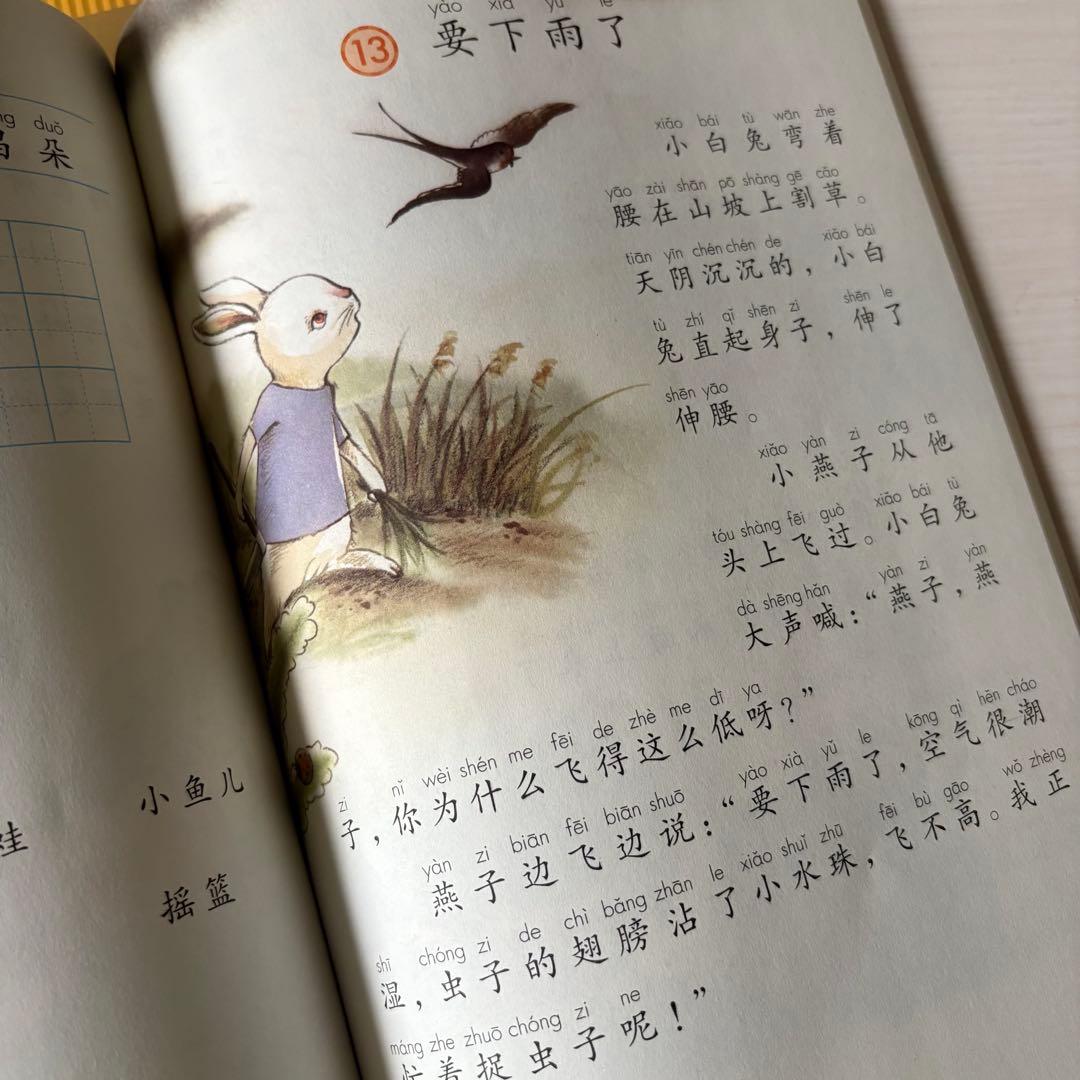 duǒ
朵
小鱼儿
摇篮
yào xià yǔ le
13 要下雨了
xiǎo bái tù wān zhe
小白兔弯着
yāo zài shān pō shàng gē cǎo
腰在山坡上割草。
tiān yīn chén chén de xiǎo bái
天阴沉沉的，小白
tù zhí qǐ shēn zi shēn le
兔直起身子，伸了
shēn yāo
伸腰。
xiǎo yàn zi cóng tā
小燕子从他
tóu shàng fēi guò xiǎo bái tù
头上飞过。小白兔
dà shēng hǎn yàn zi yàn
大声喊：“燕子，燕
zi nǐ wèi shén me fēi de zhè me dī ya
子，你为什么飞得这么低呀？”
yàn zi biān fēi biān shuō yào xià yǔ le kōng qì hěn cháo
燕子边飞边说：“要下雨了，空气很潮
shī chóng zi de chì bǎng zhān le xiǎo shuǐ zhū fēi bù gāo wǒ zhèng
湿，虫子的翅膀沾了小水珠，飞不高。我正
máng zhe zhuō chóng zi ne
忙着捉虫子呢！”